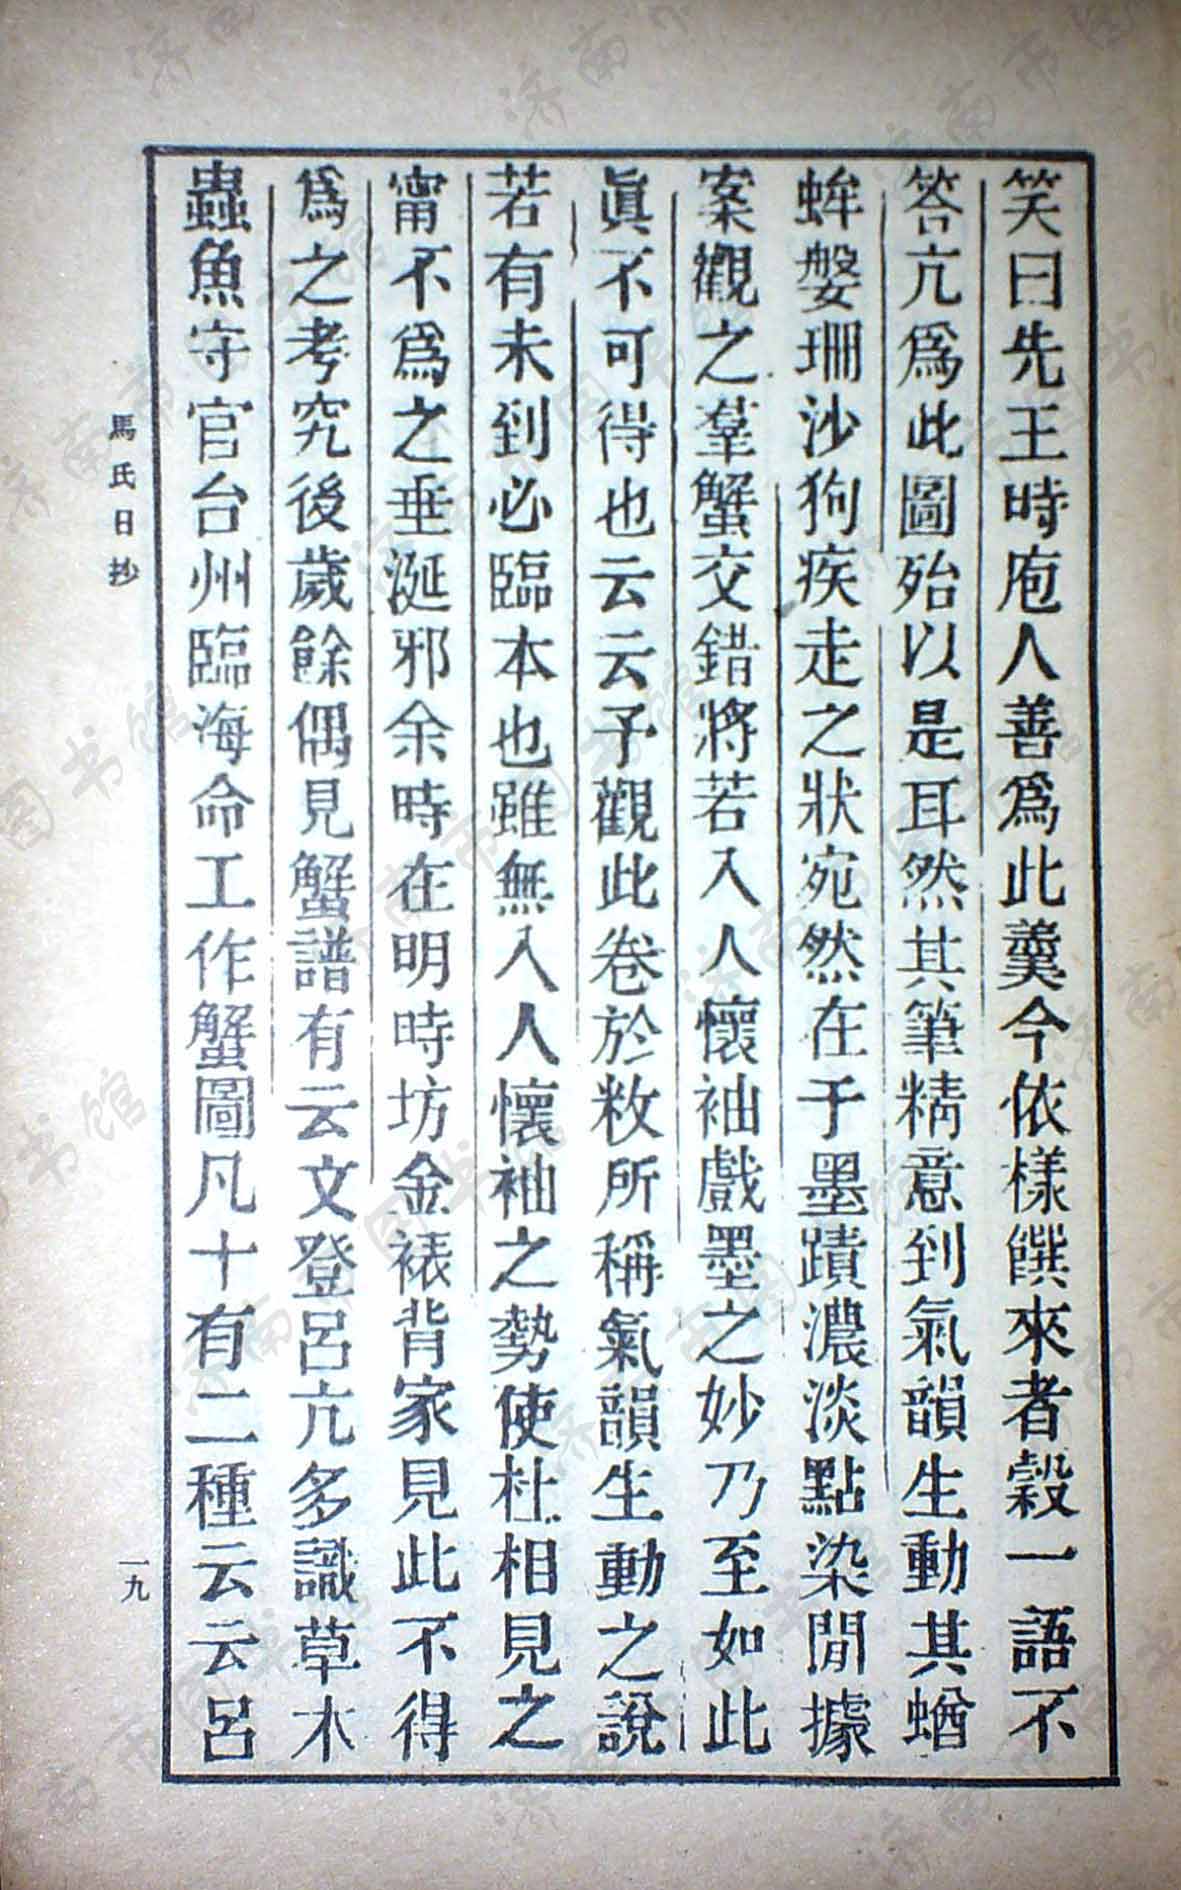 笑曰先王時庖人善爲此羹今依樣饌來者穀一語不
答亢爲此圖殆以是耳然其筆精意到氣韻生動其蝤
蛑媻珊沙狗疾走之狀宛然在于墨蹟濃淡點染閒據
案觀之羣蟹交錯將若入人懷袖戲墨之妙乃至如此
眞不可得也云云予觀此卷於敉所稱氣韻生動之說
若有未到必臨本也雖無入人懷袖之勢使杜相見之
甯不爲之垂涎邪余時在明時坊金裱背家見此不得
爲之考究後歲餘偶見蟹譜有云文登呂亢多識草木
蟲魚守官台州臨海命工作蟹圖凡十有二種云云呂
馬氏日抄
一九
济南市图书馆